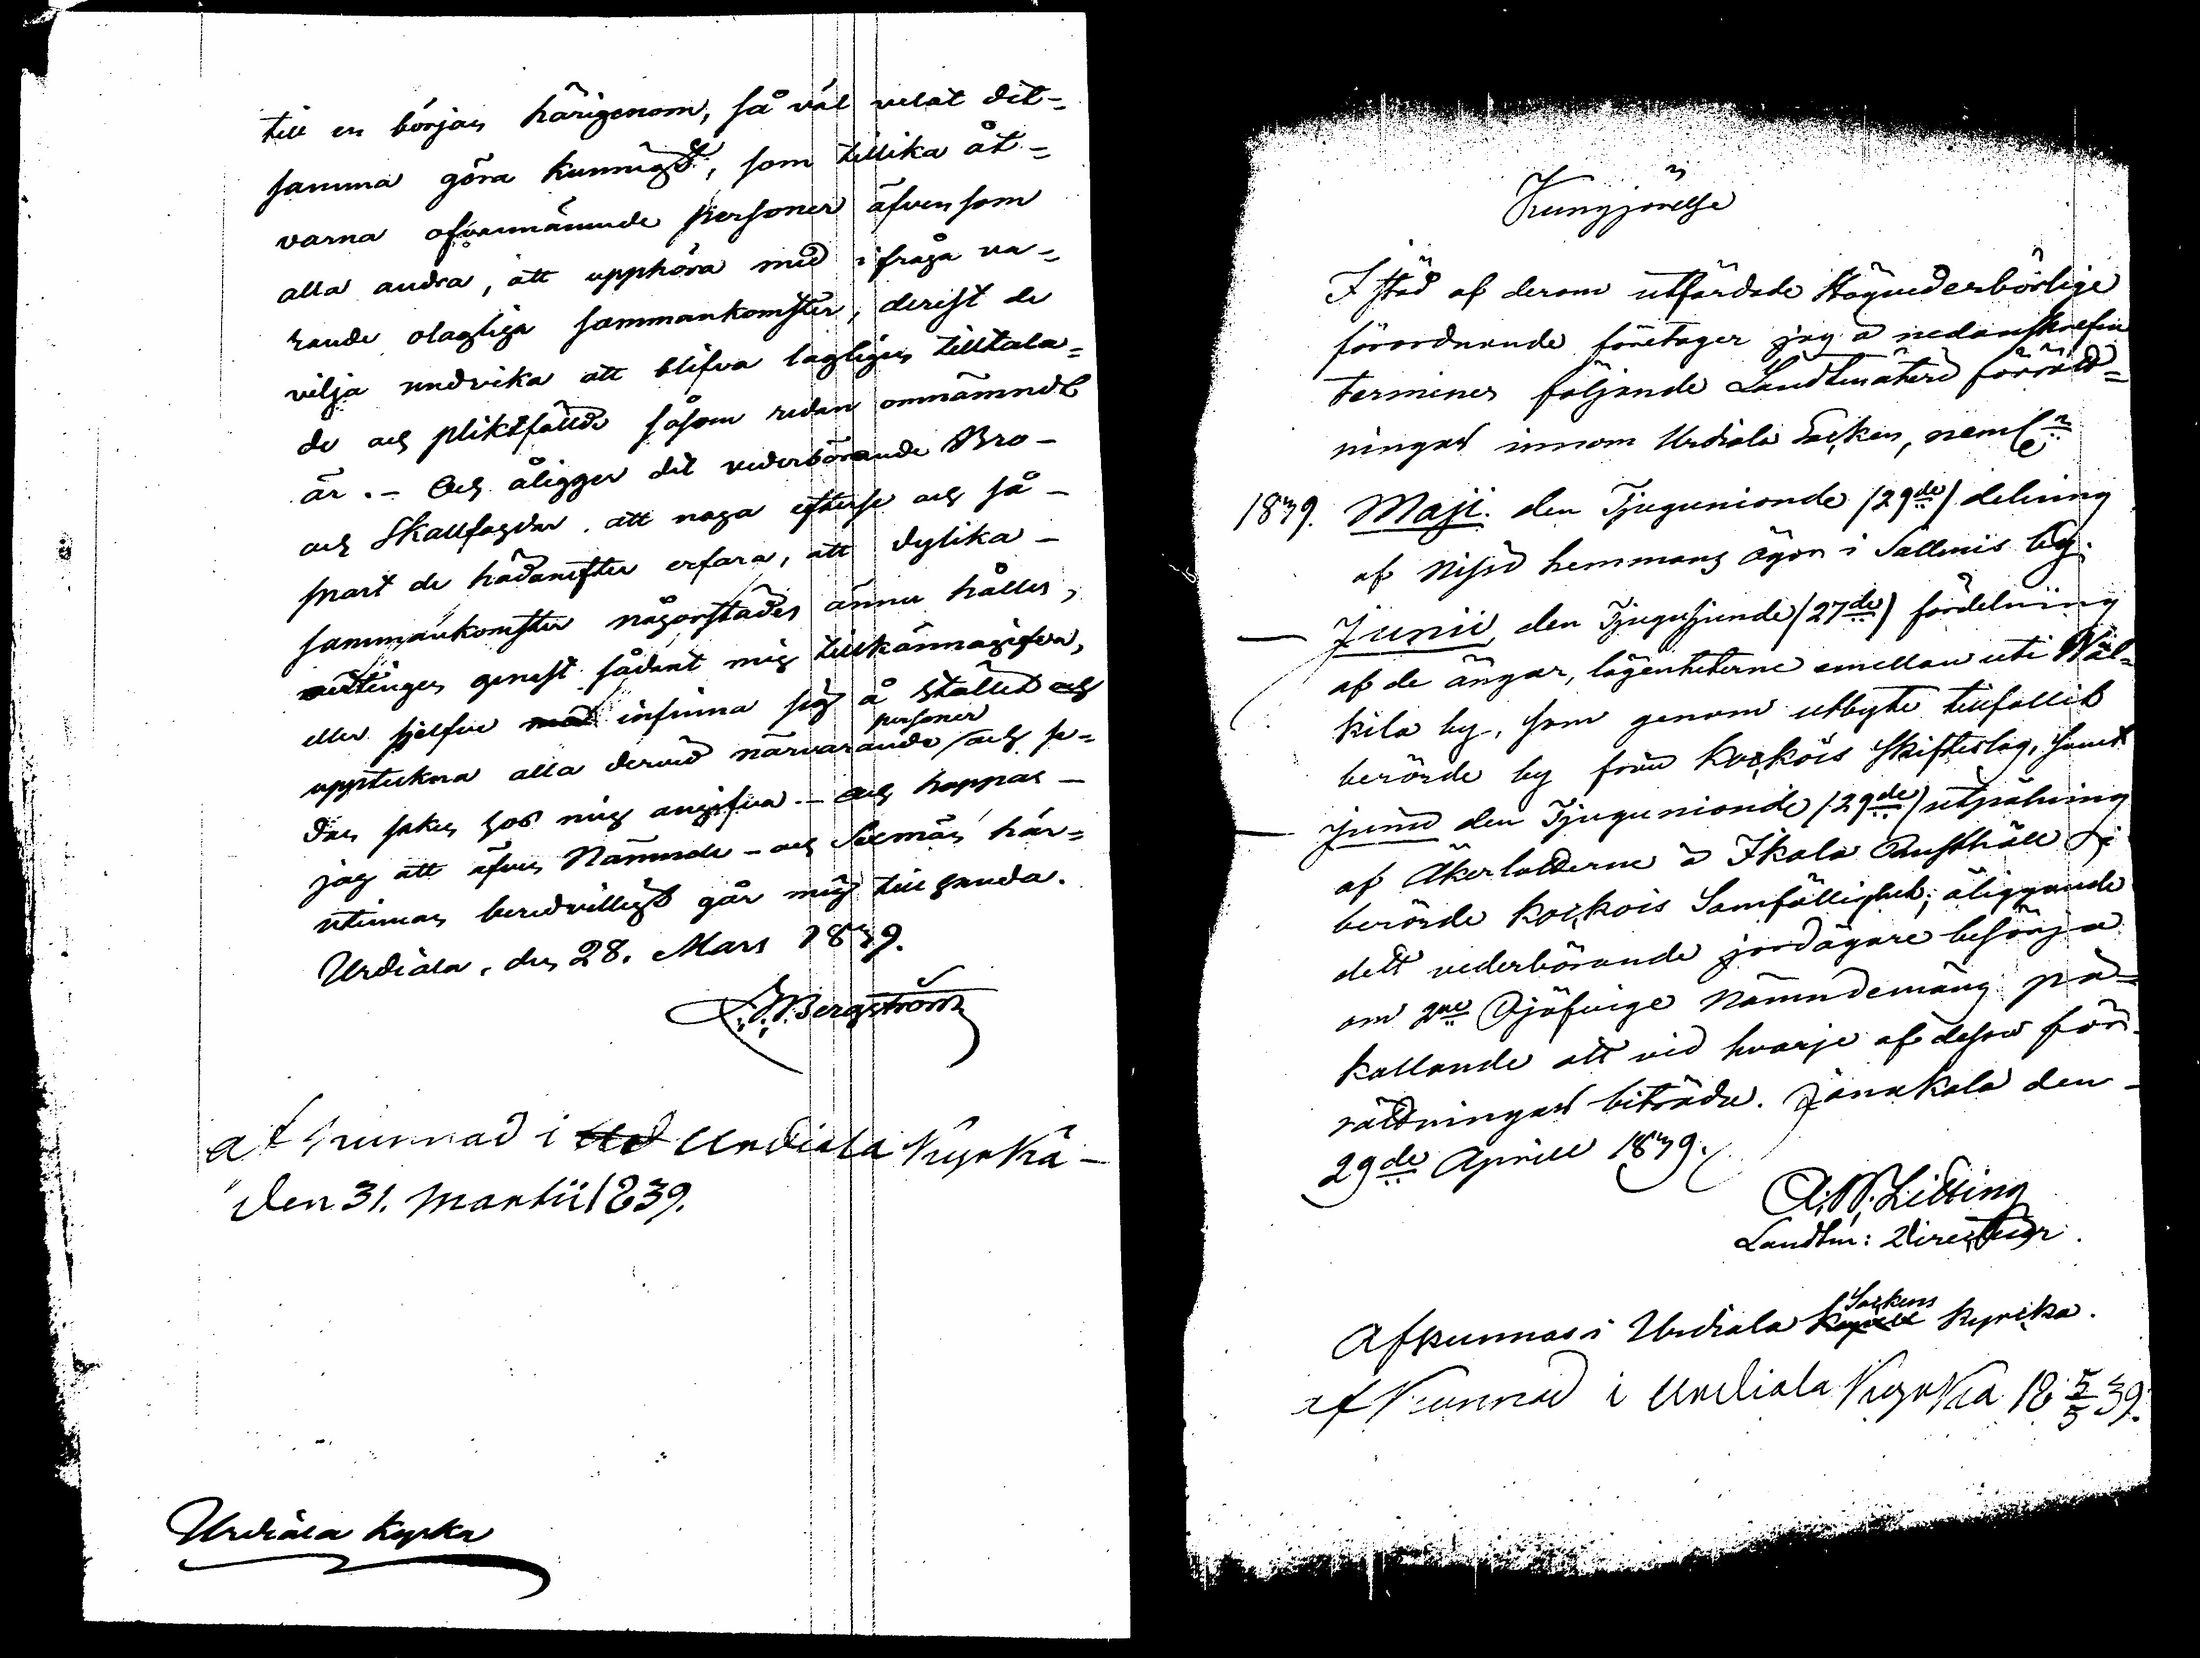 till en början härigenom, så väl velat det-
samma göra kunnigt, som tillika åt-
varna ofvannämnde personer äfvensom
alla andra, att upphöra med ifråga va-
rande olagliga sammankomster, derest de
vilja undvika att blifva lagligen tilltala-
de och pliktfällde såsom redan omnämndt
är. - Och åligger det vederbörande Bro-
och Skallfogdar att noga efterse och så-
snart de hädanefter erfara, att dylika
sammankomster någorstädes ännu hålles,
genast sådant mig tillkännagifva,
eller sjelfve infinna sig å stället och
personer
uppteckna alla dervid närvarande och se-
dan saken hos mig angifva. - Och hoppas
jag att äfven Nämnde- och Sexmän här-
utinnan beredvilligt går mig till handa.
Urdiala, den 28. Mars 1839.
Bergström
afkunnad i Urdiala Kyrka
den 31. Martii 1839.
Urdiala Kyrka
Kungjörelse
I stöd af derom utfärdade Högvederbörlige
förordnande företager jag å nedanskrefne
terminer följande Landtmäteri förrätt-
ningar innom Urdiala Socken, neml:n
1839. Maji den Tjugunionde (29de) delning
af Nisso hemmans ägor i Sallmis by.
— Junii den Tjugusjunde (27de) fördelning
af de ängar, lägenheterne emellan uti Wäl-
kilä by, som genom utbyte tillfallit
berörde by från Kockois Skifteslag, samt
— Junii den Tjugunionde (29de) utpålning
af Åkerlotterne å Ikala Rusthåll i
berörde Kockois Samfällighet; åliggande
dett vederbörande jordägare besörja
om 2ne Ojäfvige Nämndemäns på-
kallande att vid hvarje af dessa för-
rättningar biträda. Janakkala den
29de Aprill 1839.
Landtm: Directeur.
Sockens
Afkunnas i Urdiala Kyrcka.
afkunnad i Urdiala Kyrka 18 5/5 39.